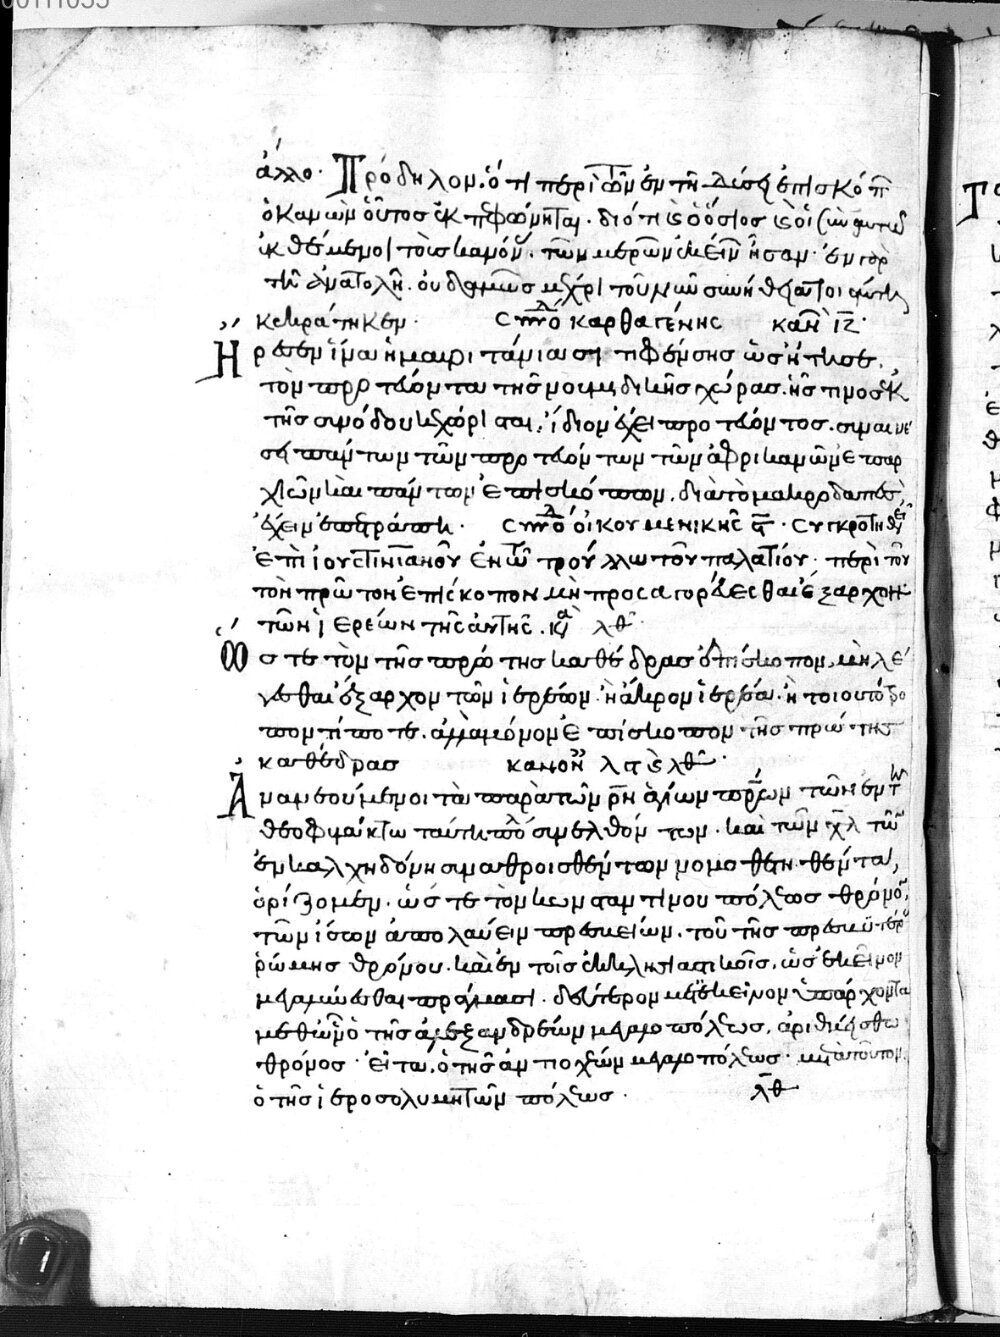 00111035
ἄλλο. Πρόδηλον ὅτι περὶ τῶν ἐν τῇ δύσει ἐπισκόπ
ὁ κανὼν οὗτος ἐκπεφώνηται. διότι ὁ ὅσιος οἱ σὺν αυτῶ
ἐκθέμενοι τοῖς κανόν. τῶν μερῶν ἐκείν ἦσαν. ἐν γὰρ
τῆ ἀνατολῆ. οὐδαμῶς μέχρι τοῦ νῦν συνήθεια τοιαύτη
κεκράτηκεν. συνόδ καρθαγένης καν ιζ
Ἤρεσεν ἵνα ἡ μαυριτάνια σιτιφένσης ὡς ἤτησε
τὸν πρωτεύοντα τῆς νουμιδικῆς χώρας. ἧς τινος ἐκ
τῆς συνόδου κεχώρισται, ἴδιον ἔχει πρωτεύοντος. συναινέ
σει πάντων τῶν πρωτευόντων τῶν ἀφρικανῶν ἐπαρ
χιῶν καὶ πάντων ἐπισκόπων. διὰ τὸ μακροδαπές,
ἔχειν ἐπέτραπται. συνόδ οἰκουμενικῆς ς. συγκροτηθεί
ἐπὶ ιουστινιανοῦ ἐν τῶ τρούλλω τοῦ παλατίου. περὶ τοῦ
τὸν πρῶτον ἐπίσκοπον μὴ προσαγορεύεσθαι ἔξαρχον
τῶν ἱερέων τῆς αὐτῆς. κα λθ
Ὥστε τὸν τῆς πρώτης καθέδρας ἐπίσκοπον, μὴ λέ
γεσθαι ἔξαρχον τῶν ἱερέων. ἢ ἄκρον ἱερέα. ἢ τοιουτότρο
πόν τί ποτε. ἀλλὰ μόνον ἐπίσκοπον τῆς πρώτης
καθέδρας κανον λς λθ
Ἀνανεούμενοι τὰ παρὰ τῶν ρν ἁγίων πρων τῶν ἐν τ
θεοφυλάκτω ταύτη πόλ συνελθόντων. καὶ τῶν χλ τῶν
ἐν καλχηδόνι συναθροισθέντων νομοθετηθέντα,
ὁρίζομεν. ὥστε τὸν κωνσταντίνου πόλεως θρόνον,
τῶν ἴσων ἀπολαύειν πρεσβείων. τοῦ τῆς πρεσβυτέρ
ῥώμης θρόνου. καὶ ἐν τοῖς ἐκκλησιαστικοῖς, ὡς ἐκεῖνον
μεγαλύνεσθαι πράγμασι. δεύτερον μετ ἐκεῖνον ὑπάρχοντα
μεθ ὧν ὁ τῆς ἀλεξανδρέων μεγαλοπόλεως. ἀριθμείσθω
θρόνος. εἶτα, ὁ τῆς ἀντιοχέων μεγαλοπόλεως. μετὰ τοῦτον,
ὁ τῆς ἱεροσολυμητῶν πόλεως. λθ